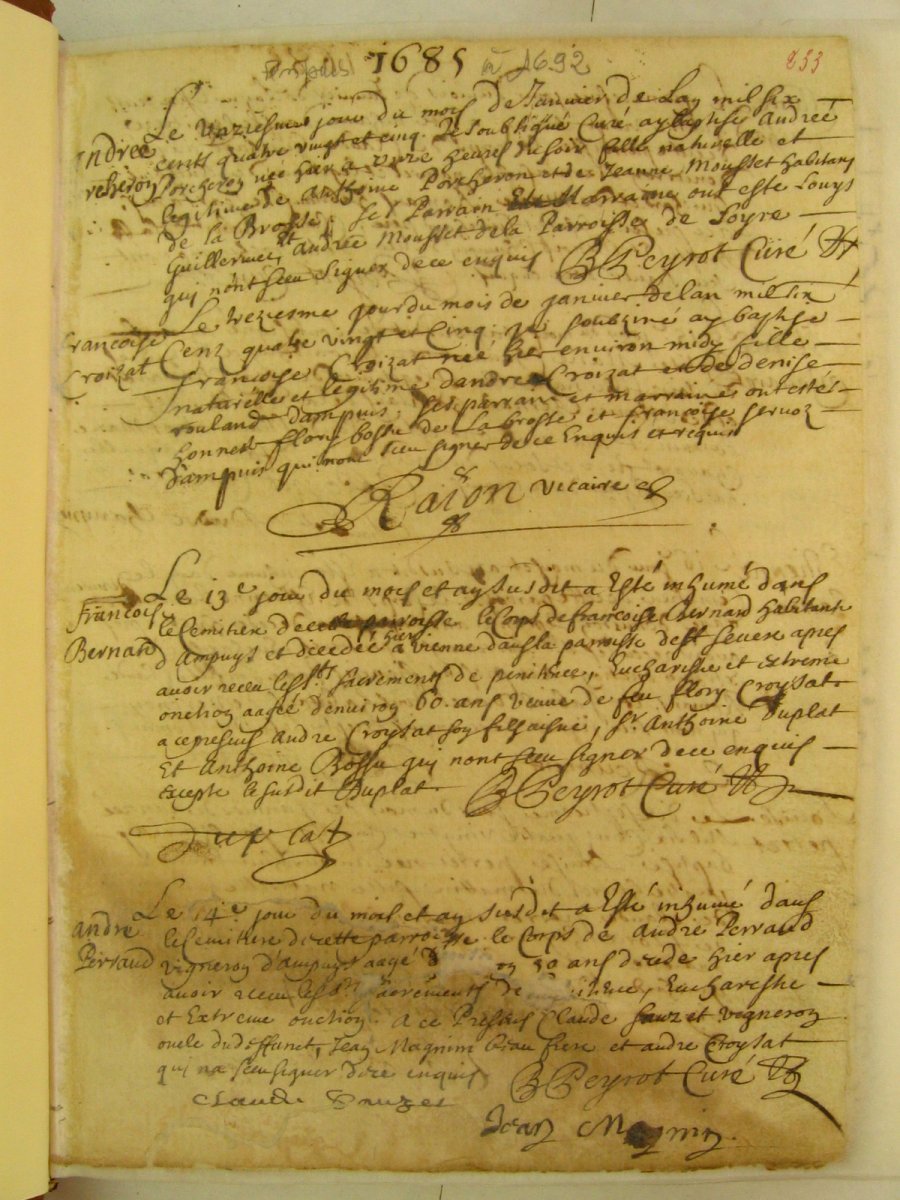 1685 à 1692
233
Andree
rcheron
Le Unziesme jour du mois de Januier de Lan mil six
cents quatre vingt et cinq Je soubsigné Curé ay baptisé Andreé
Porcheron née hier a unze heures du soir fille naturelle et
legitime de Anthoine Porcheron et de Jeanne Mousset habitans
de la Brosse. Ses Parrain et Marraine ont esté Louys
Guillermet et Andreé Mousset de la Parroisse de Loyre
qui n'ont sceu signer de ce enquis B Peyrot Curé
francoise
Croizat
Le treziesme jour du mois de janvier de lan mil six
Cenz quatre vingt et Cinq je soubzsiné ay baptise
francoise Croizat neé hier environ midy fille
naturelle et legitime dandre Croizat et de denise
rouland dampuis ses parrain et marraines ont estés
honnest flory bossu de La brosse et francoise servoz
dampuis qui nont sceu signer de ce Enquis et requis
Raÿon vicaire
Francoise
Bernard
Le 13e jour du mois et an susdit a Esté inhumé dans
le Cemitiere de cette parroisse le Corps de francoise Bernard habitante
d'Ampuys et décédée hier a vienne dans la parroisse de st severe apres
avoir receu les sts sacrements de penitence, Eucharistie et extreme
onction aageé denviron 60. ans veuve de feu flory Croysat
a ce presens Andre Croysat son fils aisne, sr. Anthoine Duplat
Et Anthoine Bossu qui nont sceu signer de ce enquis
excepte le susdit Duplat B Peyrot Curé
Duplat
Andre
Perraud
Le 14e jour du mois et an susdit a Esté inhumé dans
le Cemitiere de cette parroisse le Corps de Andre Perraud
vigneron d'Ampuys aagé on 30 ans décédé hier apres
avoir receu les sts sacrements de Eucharestie
et Extreme onction. A ce Presens Claude et vigneron
oncle du deffunct, Jean Magnin beau frere et andre Croysat
qui na sceu signer de ce enquis B Peyrot Curé
Jean Magnin.